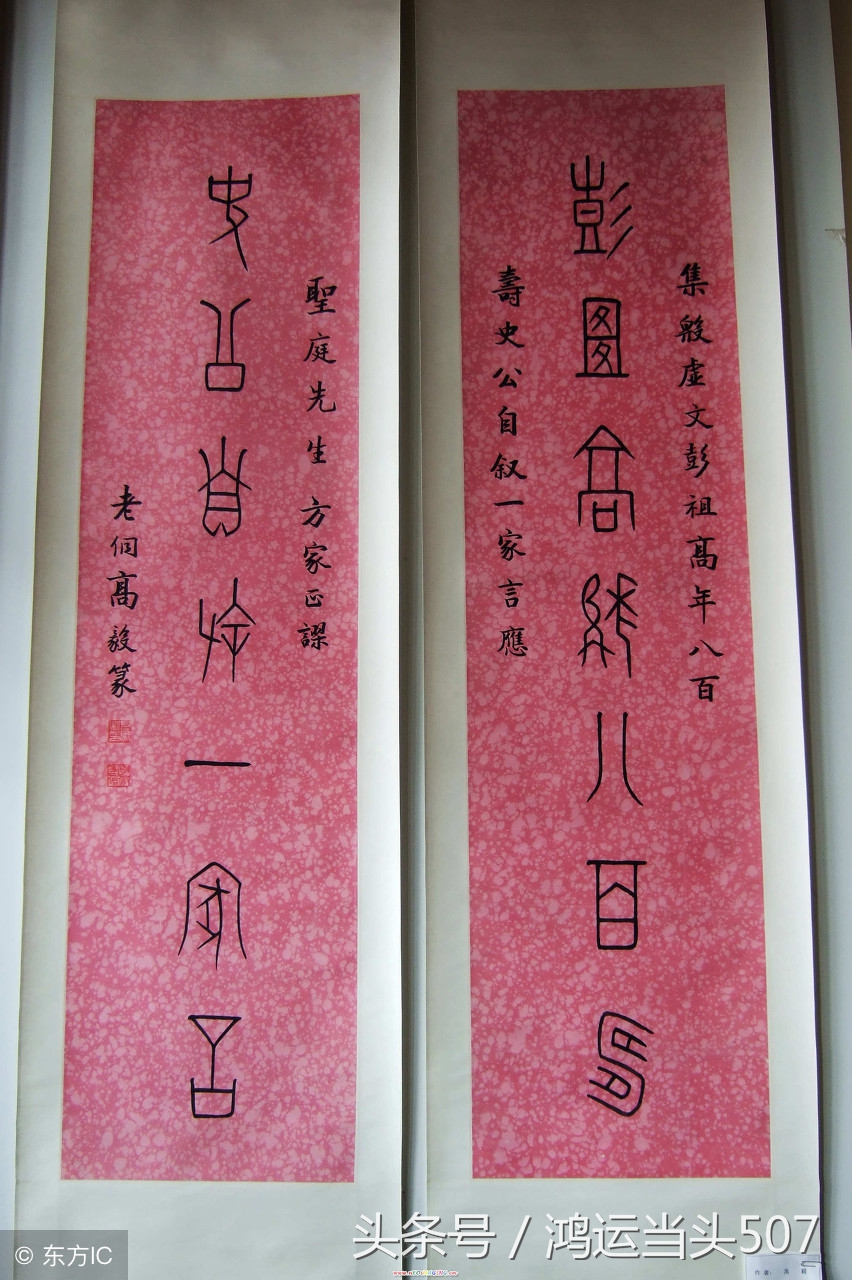 集殷虚文彭祖髙年八百
彭祖高年八百壽
壽史公自叙一家言應
聖庭先生 方家正謬
史公自叙一家言
老侗髙毅篆
头条号 / 鸿运当头507
© 东方IC